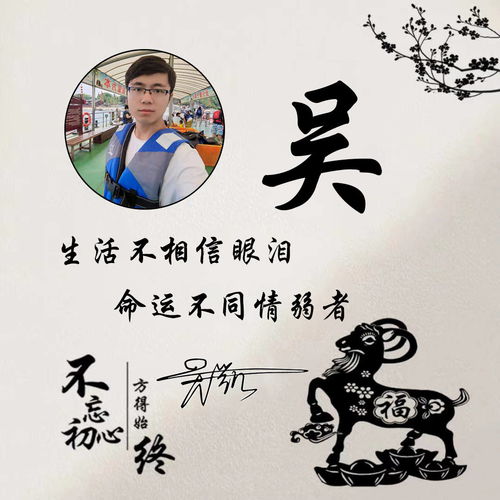 吴
生活不相信眼泪
命运不同情弱者
不忘初心
方得始终
福